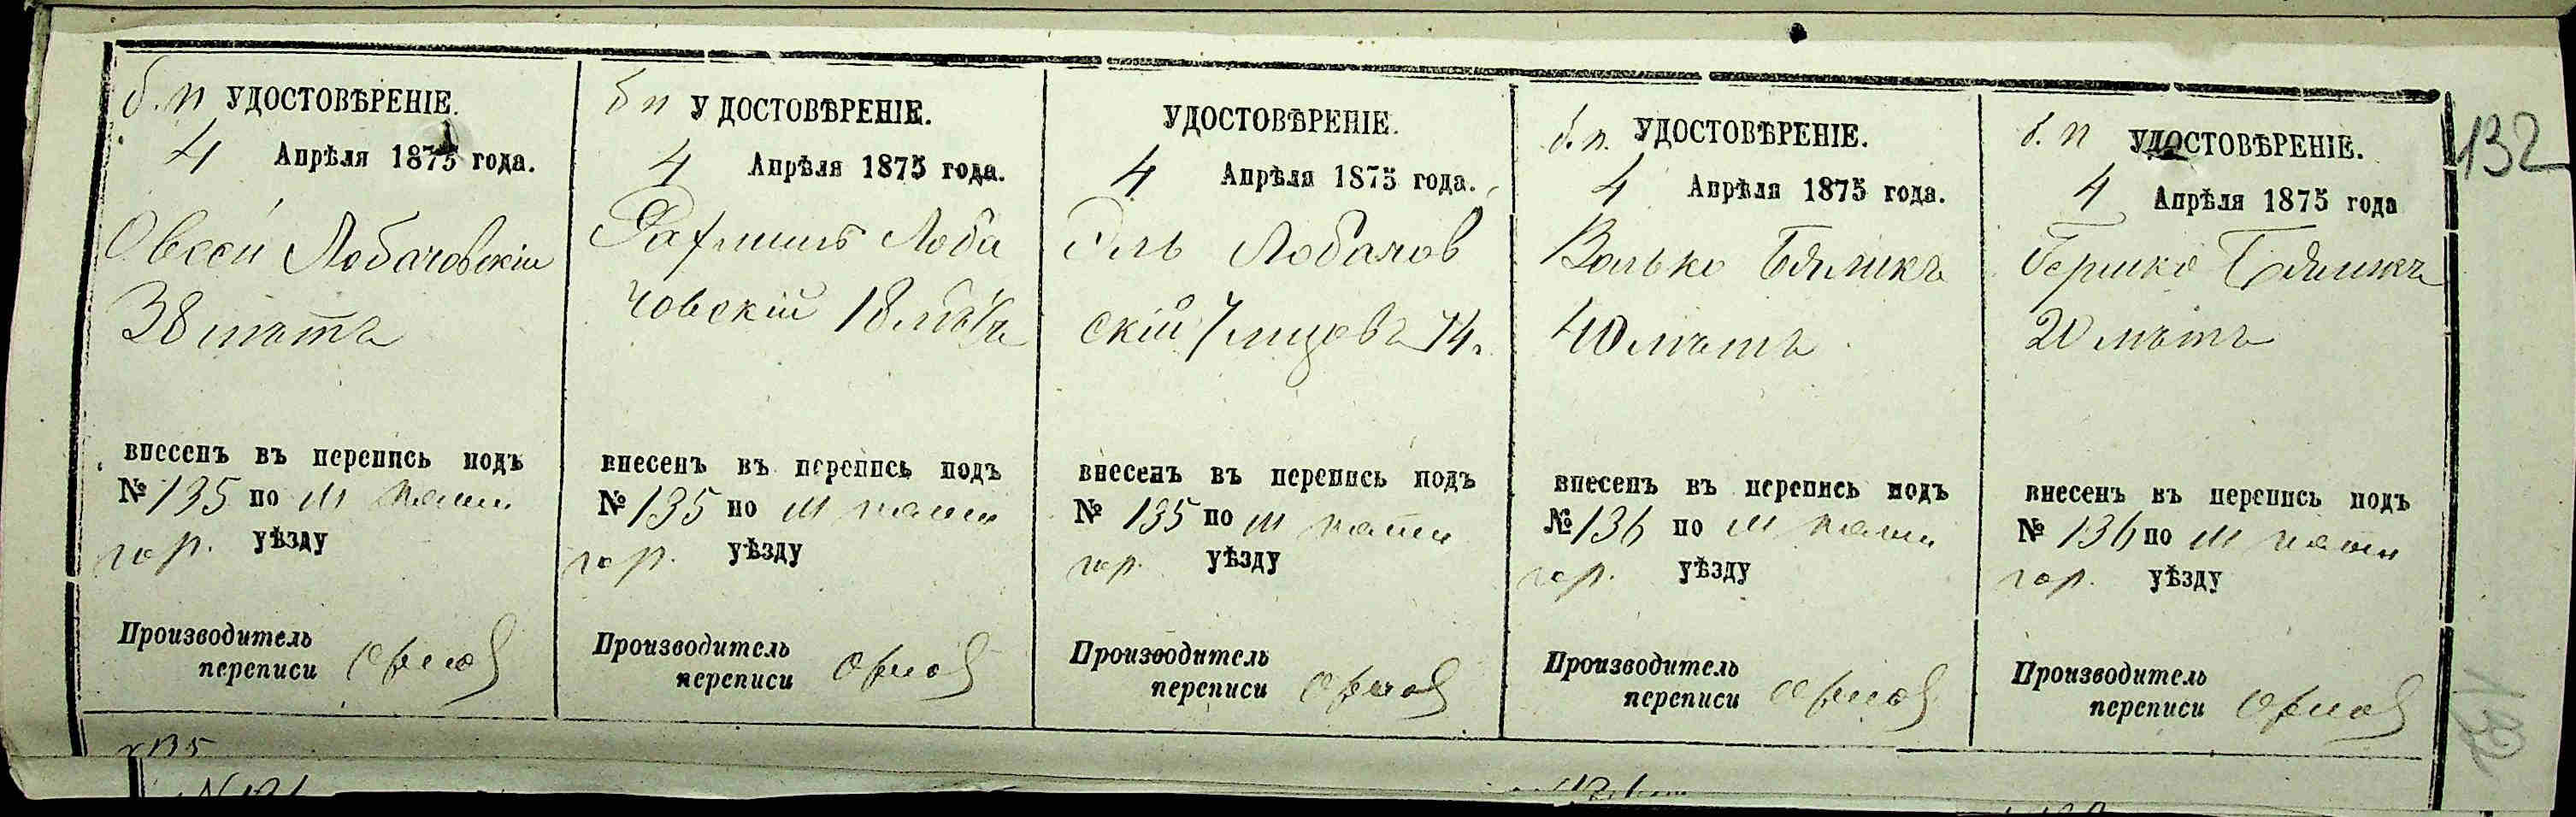 132
б. п УДОСТОВѢРЕНІЕ.
4 Апрѣля 1875 года.
Овсей Лобачовскій
38 лѣтъ
внесенъ въ перепись подъ
№ 135 по м
гор. уѣзду
Производитель
переписи Орлов
б п УДОСТОВѢРЕНІЕ.
4 Апрѣля 1875 года.
Рахмиль Лоба
човскій 18 лѣтъ
внесенъ въ перепись подъ
№ 135 по м
гор. уѣзду
Производитель
переписи Орлов
УДОСТОВѢРЕНІЕ.
4 Апрѣля 1875 года.
Эль Лобачов
скій 7 74
внесенъ въ перепись подъ
№ 135 по м
гор. уѣзду
Производитель
переписи Орлов
б. п. УДОСТОВѢРЕНІЕ.
4 Апрѣля 1875 года.
Волько
40 лѣтъ
внесенъ въ перепись подъ
№ 136 по м
гор. уѣзду
Производитель
переписи Орлов
б. п УДОСТОВѢРЕНІЕ.
4 Апрѣля 1875 года
Гершко
20 лѣтъ
внесенъ въ перепись подъ
№ 136 по м
гор. уѣзду
Производитель
переписи Орлов